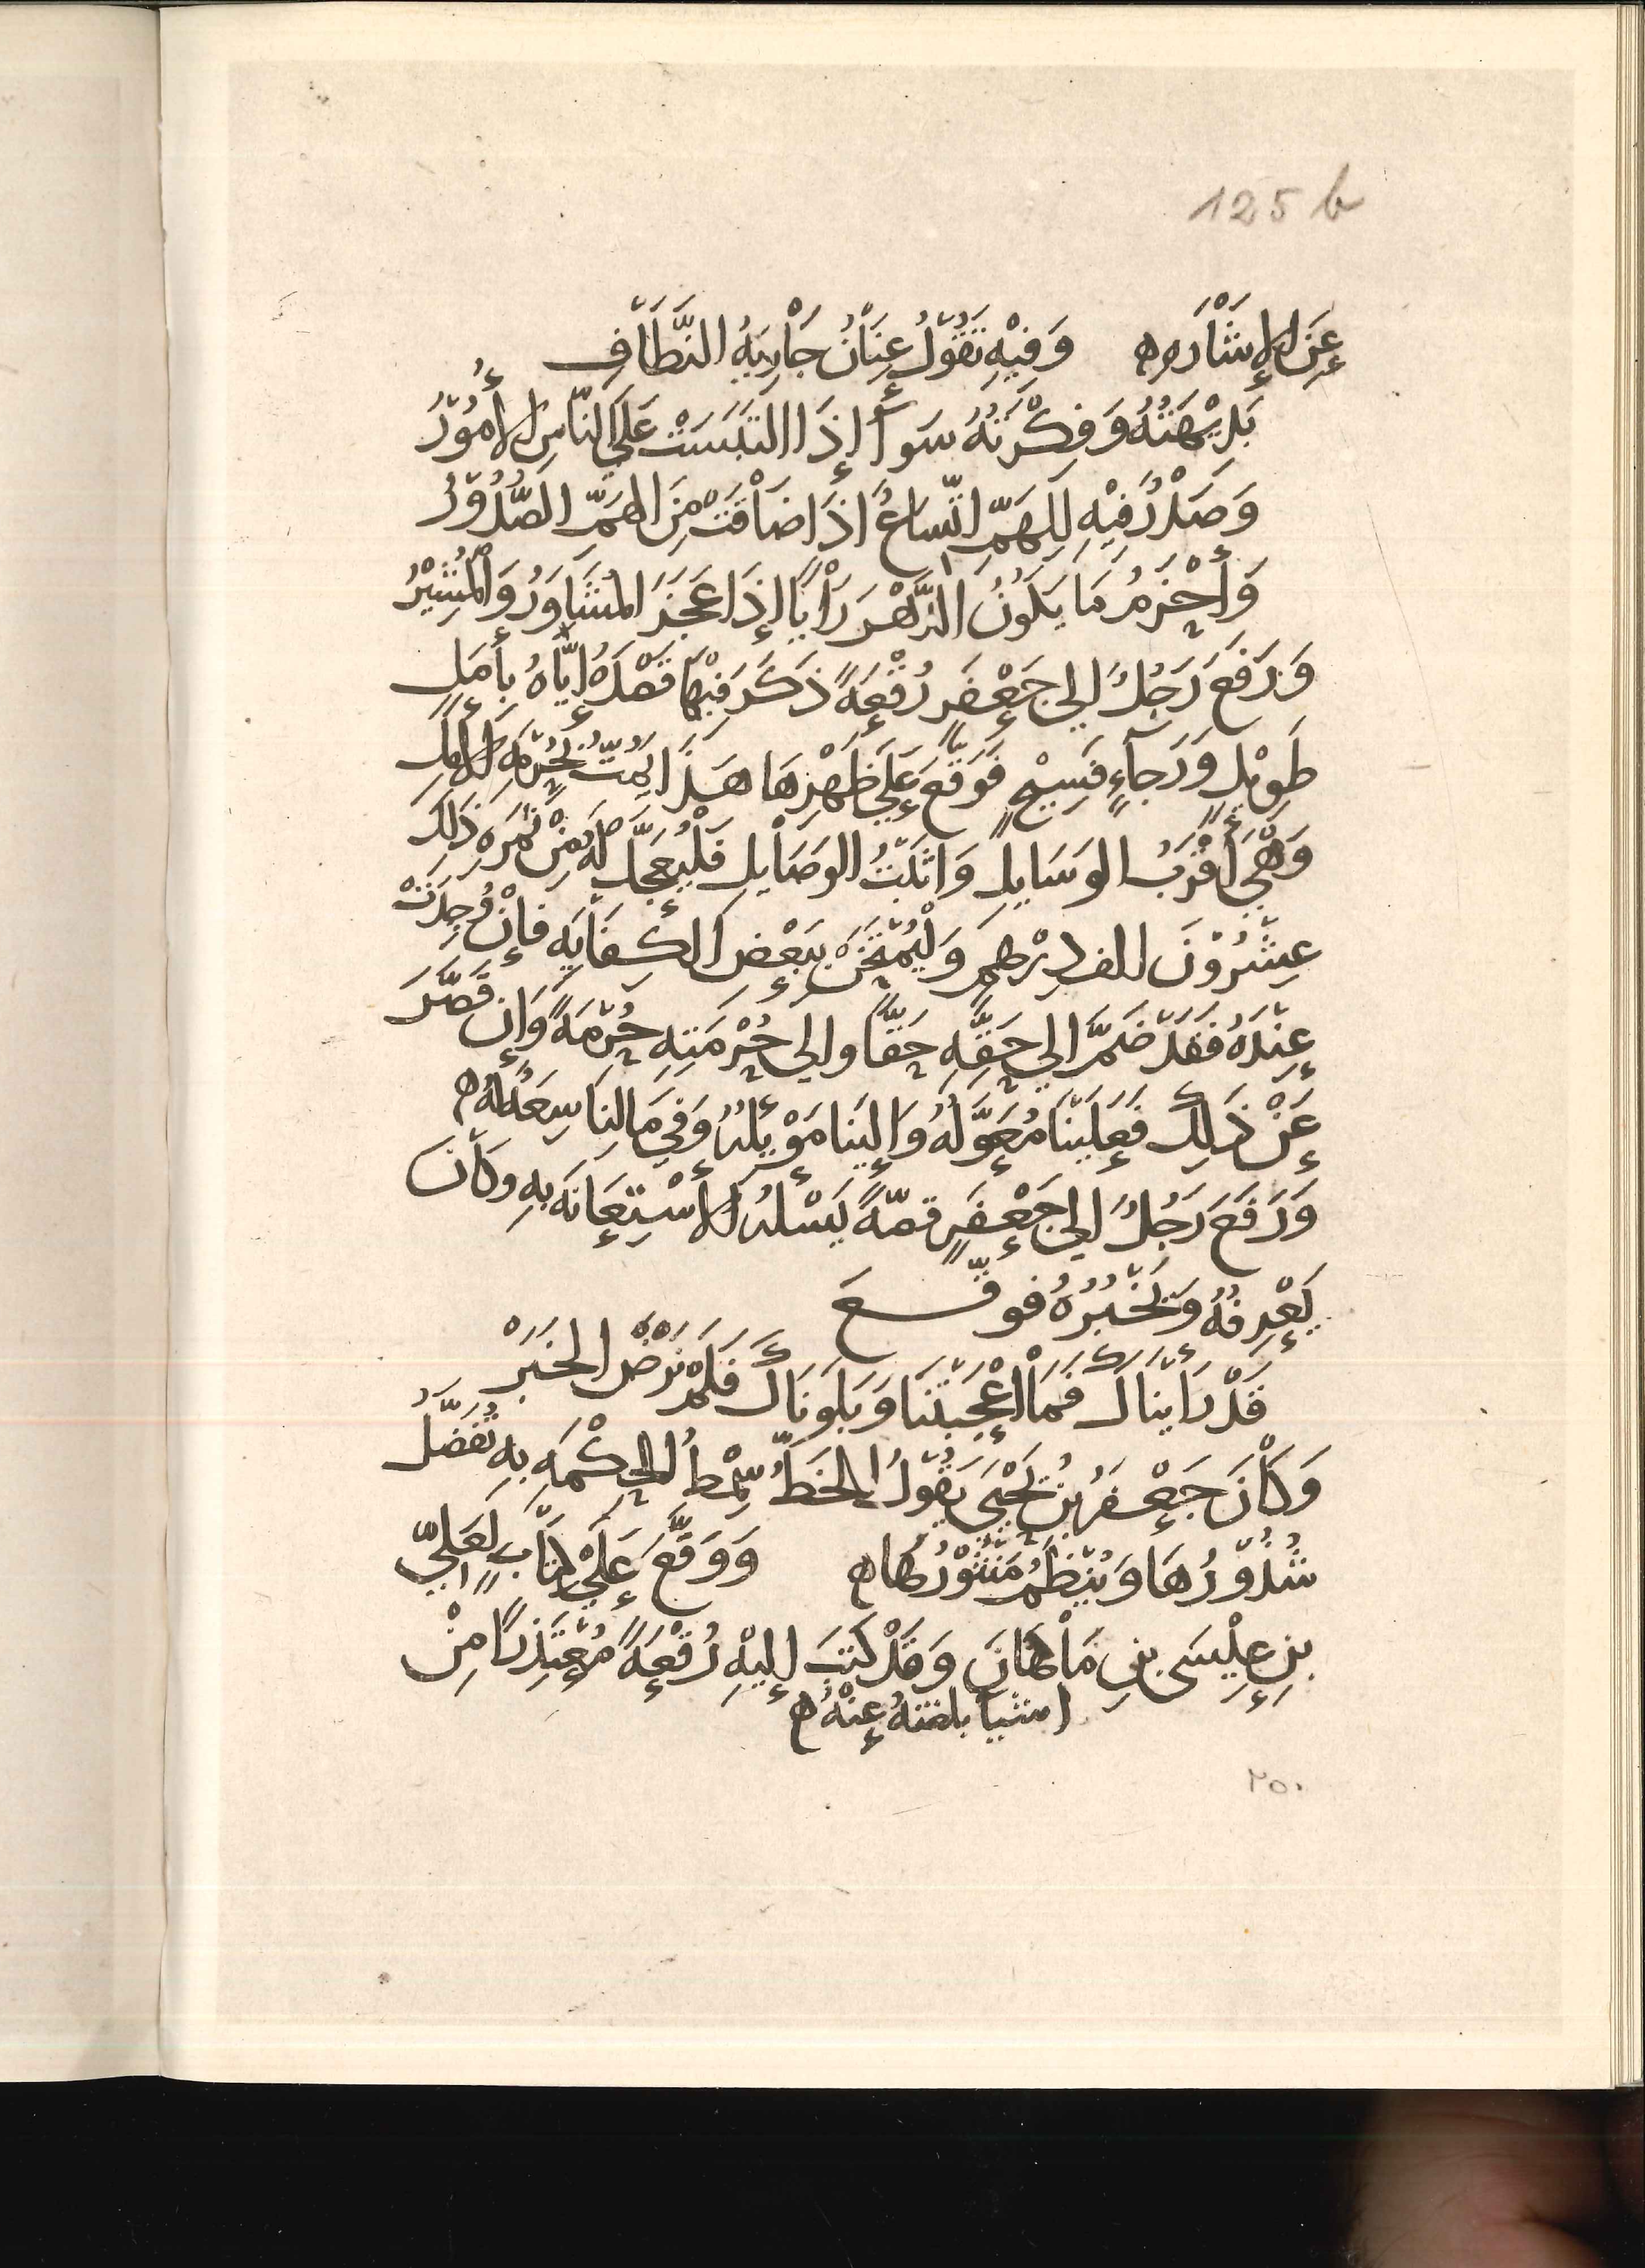 125 b
عَنِ الإِشَارَه ه وَفِيْهِ تَقُوْلُ عِنَانُ جَارِيَهُ النَّطَّافِ
بَدِيْهَتُهُ وَفِكْرَتُهُ سَوآً إِذَا التَبَسَتْ عَلَي النَّاسِ الأُمُوْرُ
وَصَدْرٌ فِيْهِ لِلهَمِّ اتّسَاعٌ اذَا ضَاقَتْ مِنَ الهَمِّ الصُّدُوْرُ
وَأَحْزَمُ مَا يَكُونُ الدَّهْرَ رَأْيًا إِذَا عَجَزَ المُشَاوَرُ وَالمُشِيْرُ
وَرَفَعَ رَجُلٌ الي جَعْفَرٍ رُقْعَةً ذَكَرَ فِيْهَا قَصْدَهُ إِيَّاهُ بِأَمَلٍ
طَوِيْلٍ وَرَجَآءٍ فَسِيْحٍ فَوَقَّعَ عَلَي ظَهْرِهَا هَذَا يَمُتُّ بِحُرْمَهِ الأَمَلِ
وَهْيَ أَقْرَبُ الوَسَايِلِ وَاثْبَتُ الوَصَايِلِ فَلْيُعَجَّل لَهُ مِنْ ثَمَرَهِ ذَلكَ
عِشْرُوْنَ الف دِرْهمٍ وَلْيُمْتَحَنْ بِبَعْضِ الكِفَايَهِ فَإِنْ وُجِدَتْ
عِنْدَهُ فَقَدْ ضَمَّ الي حَقِّهِ حَقًّا والي حُرْمَتِهِ حُرْمَةً وَإِن قَصَّرَ
عَنْ ذَلِكَ فَعَلَيْنَا مُعَوَّلُهُ وَإِلَيْنَا مَوْئِلُهُ وَفِي مَالِنَا سِعَةٌ لَهُ ه
وَرَفَعَ رَجُلٌ الي جَعْفَرٍ قصّةً يَسْلُهُ الاسْتِعَانَهَ بِهِ وَكَانَ
يَعْرِفُهُ وَيَخْبُرُهُ فوقّع
قَدْ رَأَيْنَاكَ فَمَا أَعْجَبْتَنَا وَبَلَونَاكَ فَلَمْ نَرْضَ الخَبَرْ
وَكَانَ جَعْفَرُ بنُ يَحْيَى يَقُوْلُ الخَطُّ سِمْطُ الحِكْمَهِ بِهِ تُفَصَّلُ
شُذُوْرُهَا وَيُنْظَمُ مَنْثُوْرُهَا ه وَوَقَّعَ عَلَيْ كِتَابٍ لِعَلِيّ
بنِ عِيْسَى بنِ مَاهَانَ وَقَدْ كَتَبَ إِلَيْهِ رُقْعَةً مُعْتَذِرًا مِنْ
اشيا بلغته عَنْهُ ه
٢٥٠